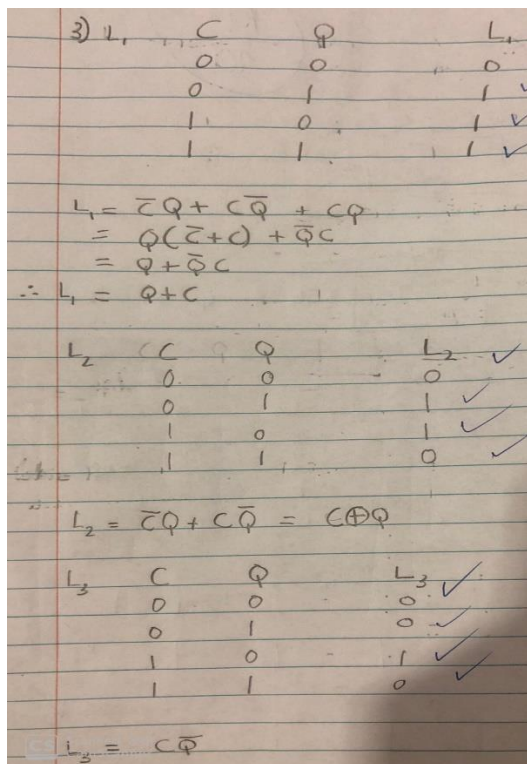 3) L₁ C Q L₁
0 0 0
0 1 1 ✓
1 0 1 ✓
1 1 1 ✓
L₁ = C̅Q + CQ̅ + CQ
= Q(C̅+C) + Q̅C
= Q + Q̅C
∴ L₁ = Q+C
L₂ C Q L₂ ✓
0 0 0
0 1 1 ✓
1 0 1 ✓
1 1 0 ✓
L₂ = C̅Q + CQ̅ = C⊕Q
L₃ C Q L₃ ✓
0 0 0
0 1 0 ✓
1 0 1 ✓
1 1 0 ✓
L₃ = CQ̅